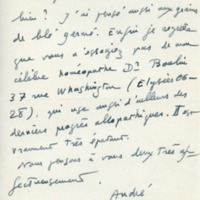 bien? J'ai pensé aussi aux grains
de blé germé. Enfin je regrette
que vous n'essayiez pas de mon
célèbre homéopathe Dr Boulin
37 rue Whashington (Elysées 06-
28), qui use aussi d'ailleurs des
derniers progrès allopathiques. Il est
vraiment très épatant.
Nous pensons à vous deux très af-
fectueusement.
André